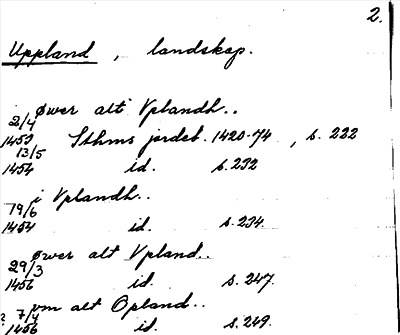 2.
Uppland, landskap.
øwer alt Vplandh..
2/4
1453 Sthms jordeb. 1420-74, s. 222
13/5
1454 id. s. 232
i Vplandh..
19/6
1454 id. s. 234
øwer alt Vpland..
29/3
1456 id. s. 247.
vm alt Opland..
? 7/4
1456 id. s. 249.